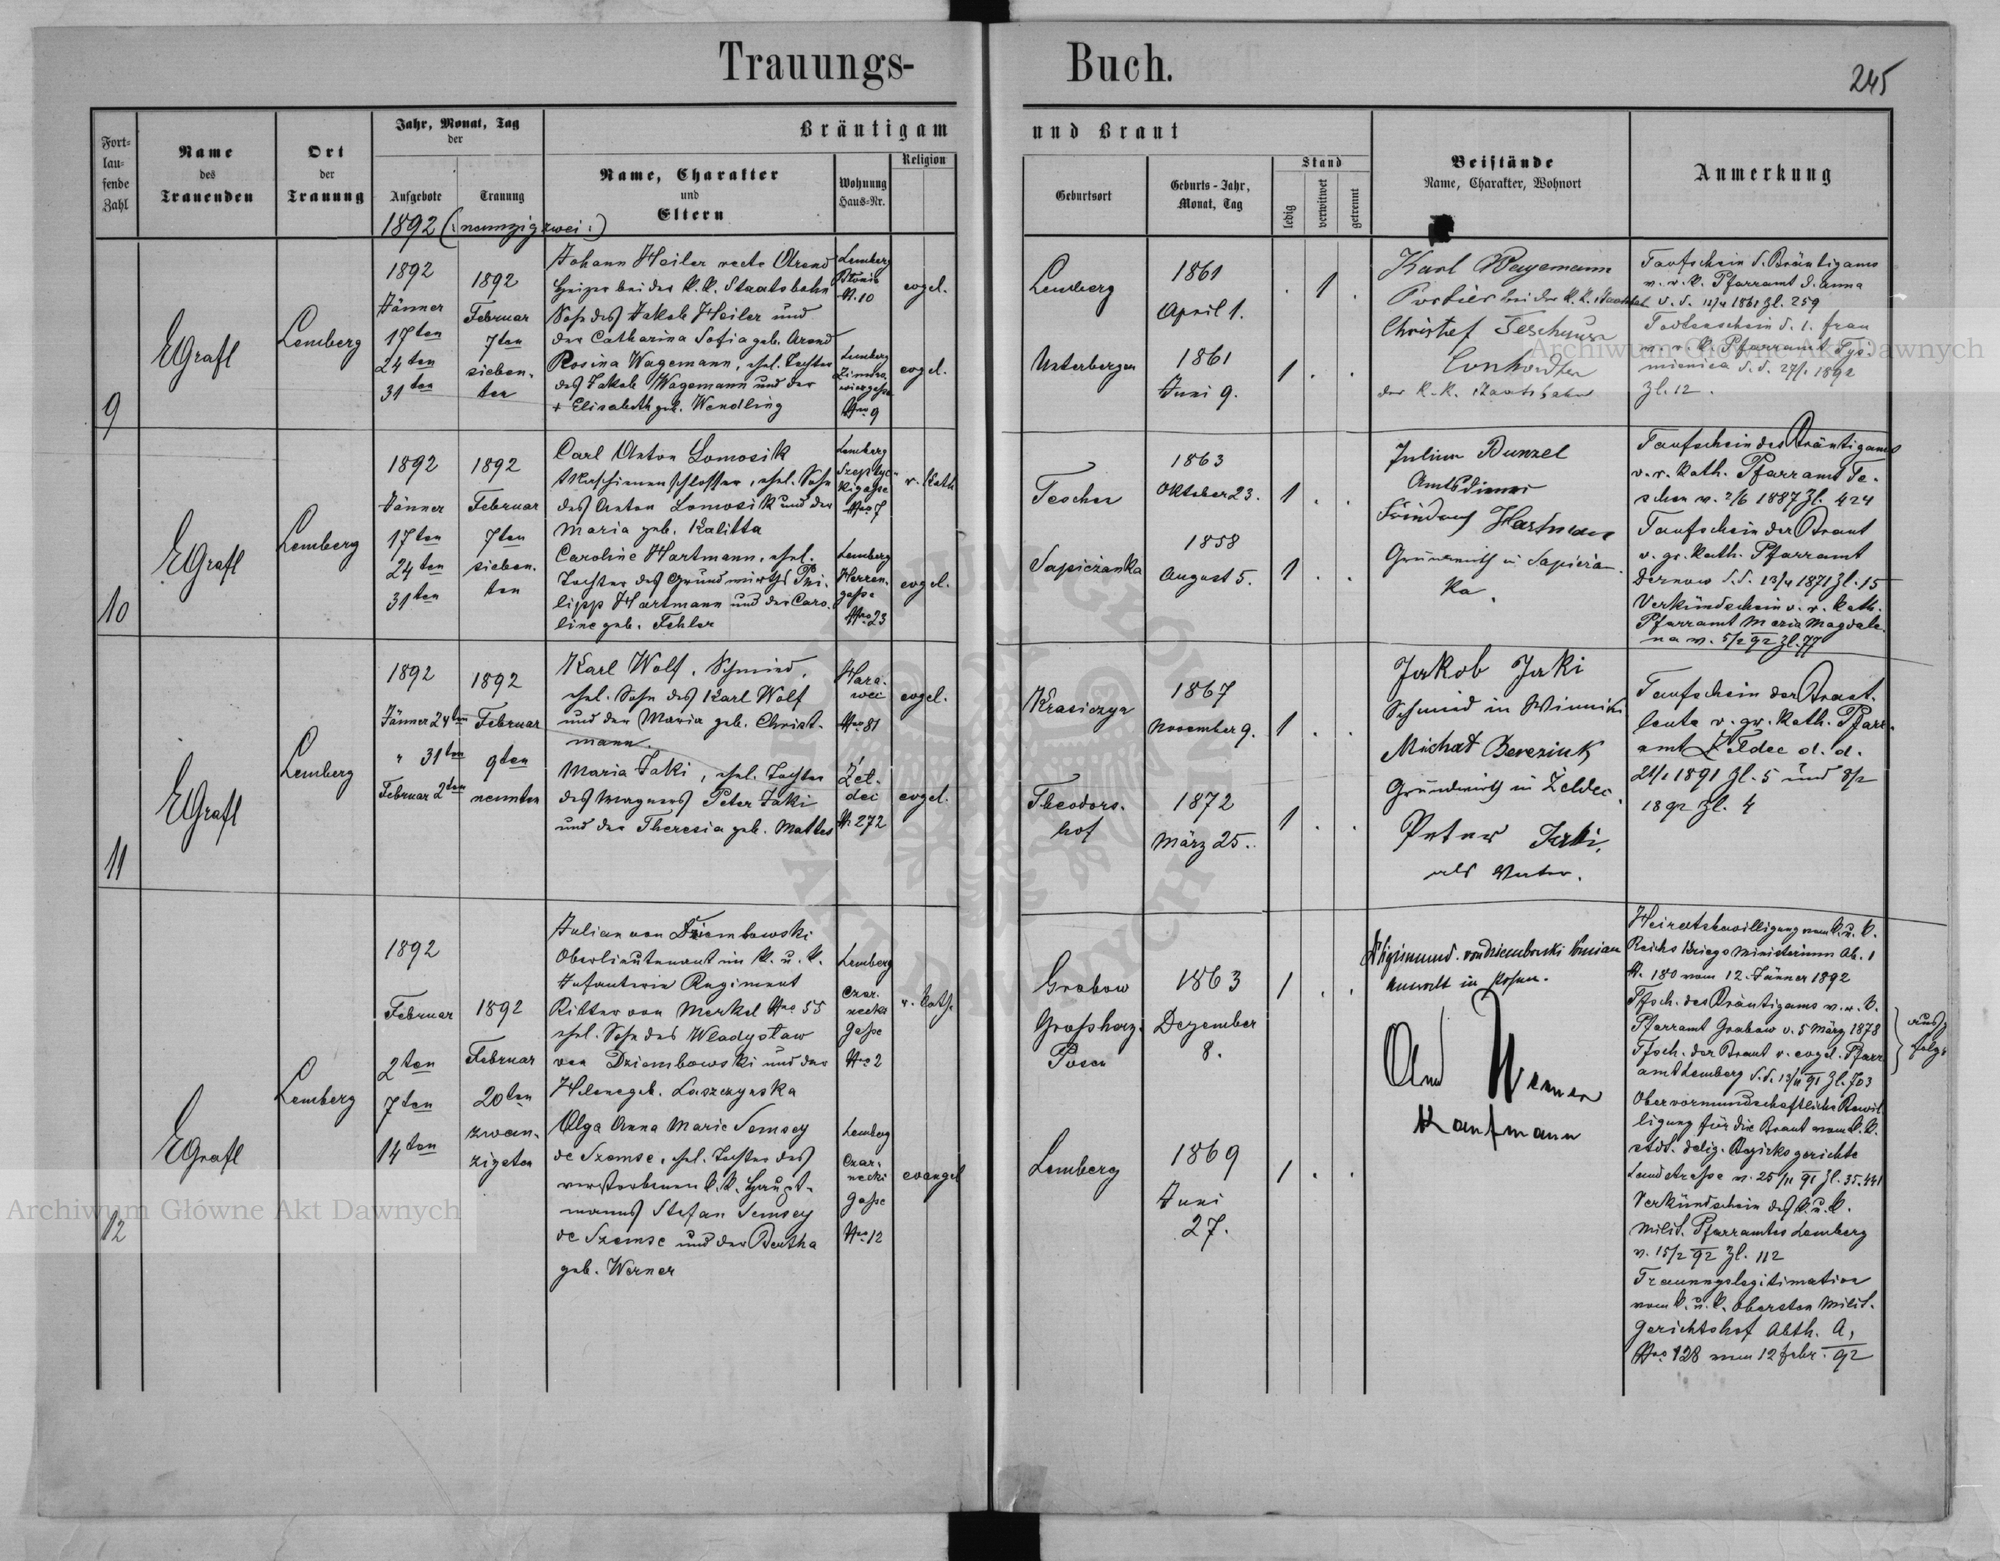 Trauungs-
Buch.
245
Fort-
lau-
fende
Zahl
Name
des
Trauenden
Ort
der
Trauung
Jahr, Monat, Tag
der
Aufgebote
Trauung
Bräutigam
Name, Charakter
und
Eltern
Wohnung
Haus-Nr.
Religion
und Braut
Geburtsort
Geburts-Jahr,
Monat, Tag
Stand
ledig
verwitwet
getrennt
Beistände
Name, Charakter, Wohnort
Anmerkung
1892 (: neunzig zwei :)
9
EGrafl
Lemberg
1892
Jänner
17ten
24ten
31ten
1892
Februar
7ten
sieben-
ten
Johann Heiler recte Arend
Heizer bei der k. k. Staatsbahn
Sohn des Jakob Heiler und
der Catharina Sofia geb. Arend
Rosina Wagemann, ehel. Tochter
des Jakob Wagemann und der
+ Elisabeth geb. Wendling
Lemberg
Błonie
N. 10
Lemberg
Nro 9
evgel.
evgel.
Lemberg
Unterbergen
1861
April 1.
1861
Juni 9.
. 1 .
1 . .
Karl Wagemann
Portier bei der k. k. Staatsbah
Christof
der k. k. Staatsbahn
Taufschein d. Bräutigams
v. r. k. Pfarramt d. Anna
d. d. 12/4 1861 Zl. 259
Todtenschein d. 1. Frau
v. r. k. Pfarramt Tys-
mienica d. d. 27/1 1892
Zl. 12.
10
EGrafl
Lemberg
1892
Jänner
17ten
24ten
31ten
1892
Februar
7ten
sieben-
ten
Carl Anton Lomosik
Maschinenschlosser, ehel. Sohn
des Anton Lomosik und der
Maria geb. Kalitta
Caroline Hartmann, ehel.
Tochter des Grundwirths Phi-
lipp Hartmann und der Caro-
line geb. Fehler
Lemberg
Szeptyc-
kigasse
Nro 7
Lemberg
Herren-
gasse
Nro 23
r. kath
evgel.
Teschen
Sapieżanka
1863
Oktober 23.
1858
August 5.
1 . .
1 . .
Julius Bunzel
Amtsdiener
Hartmann
Grundwirth in Sapiežan-
ka.
Taufschein des Bräutigams
v. r. kath. Pfarramt Te-
schen v. 2/6 1887 Zl. 424
Taufschein der Braut
v. gr. kath. Pfarramt
Dernow d. d. 13/4 1871 Zl. 15
Verkündschein v. r. kath.
Pfarramt Maria Magdale-
na v. 5/2 92 Zl. 77
11
EGrafl
Lemberg
1892
Jänner 24ten
" 31ten
Februar 2ten
1892
Februar
9ten
neunten
Karl Wolf, Schmied,
ehel. Sohn des Karl Wolf
und der Maria geb. Christ-
mann.
Maria Jaki, ehel. Tochter
des Wagners Peter Jaki
und der Theresia geb. Mattes
Hara-
wei
Nro 81
Żel-
dei
N. 272
evgel.
evgel.
Krasiczyn
Theodors-
hof
1867
November 9.
1872
März 25.
1 . .
1 . .
Jakob Jaki
Schmied in Winniki
Michał Bereziuk
Grundwirth in Želdec.
Peter Jaki,
als Vater.
Taufschein der Braut-
leute v. gr. kath. Pfarr-
amt Želdec d. d.
21/1 1891 Zl. 5 und 8/2
1892 Zl. 4
12
EGrafl
Lemberg
1892
Februar
2ten
7ten
14ten
1892
Februar
20ten
zwan-
zigsten
Julian von Dziembowski
Oberlieutenant im k. u. k.
Infanterie Regiment
Ritter von Merkel Nro 55
ehel. Sohn des Władysław
von Dziembowski und der
Helene geb. Laszczynska
Olga Anna Marie Semsey
de Szemse, ehel. Tochter des
verstorbenen k. k. Haupt-
manns Stefan Semsey
de Szemse und der Bertha
geb. Werner
Lemberg
Czar-
necki
Gasse
Nro 2
Lemberg
Czar-
necki
Gasse
Nro 12
r. kath.
evangel
Grabow
Grossherz.
Posen
Lemberg
1863
Dezember
8.
1869
Juni
27.
1 . .
1 . .
Sigismund von Dziembowski
Anwalt in Posen.
Werner
Kaufmann
Heiratsbewilligung vom k. u. k.
Reichs Kriegs Ministerium Ab. 1
N. 180 vom 12. Jänner 1892
Tfsch. des Bräutigams v. r. k.
Pfarramt Grabow v. 5 März 1878
Tfsch. der Braut v. evgel. Pfarr
amt Lemberg d. d. 13/11 91 Zl. 703
Obervormundschaftliche Bewil-
ligung für die Braut vom k. k.
städt. delig. Bezirksgerichte
Landstrasse v. 25/11 91 Zl. 35.441
Verkündschein des k. u. k.
Milit. Pfarramtes Lemberg
v. 15/2 92 Zl. 112
Trauungslegitimation
vom k. u. k. Obersten Milit.
Gerichtshof Abth. A,
Nro 128 vom 12 Febr. 92
Archiwum Główne Akt Dawnych
Archiwum Główne Akt Dawnych